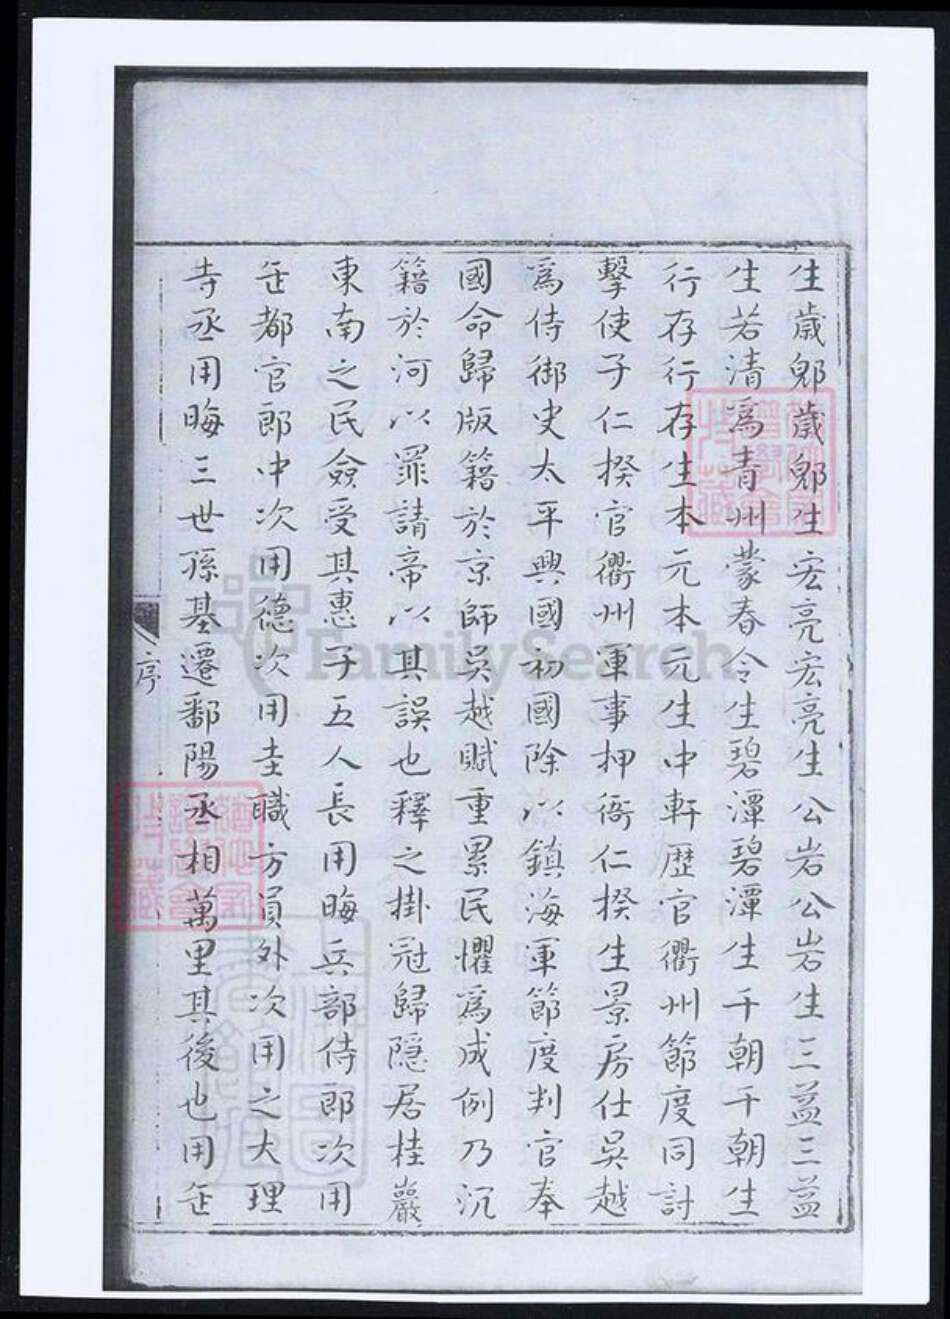 生歲郥歲郥生宏亮宏亮生公岩公岩生三益三益
生若清爲青州蒙春令生碧潭碧潭生千朝千朝生
行存行存生本元本元生中軒歷官衢州節度同討
擊使子仁揆官衢州軍事押衙仁揆生景房仕吳越
爲侍御史太平興國初國除以鎮海軍節度判官奉
國命歸版籍於京師吳越賦重累民懼爲成例乃沉
籍於河以罪請帝以其誤也釋之掛冠歸隱居桂巖
東南之民僉受其惠子五人長用晦兵部侍郎次用
㐌都官郎中次用德次用圭職方員外次用之大理
寺丞用晦三世孫基遷鄱陽丞相萬里其後也用㐌
序
FamilySearch